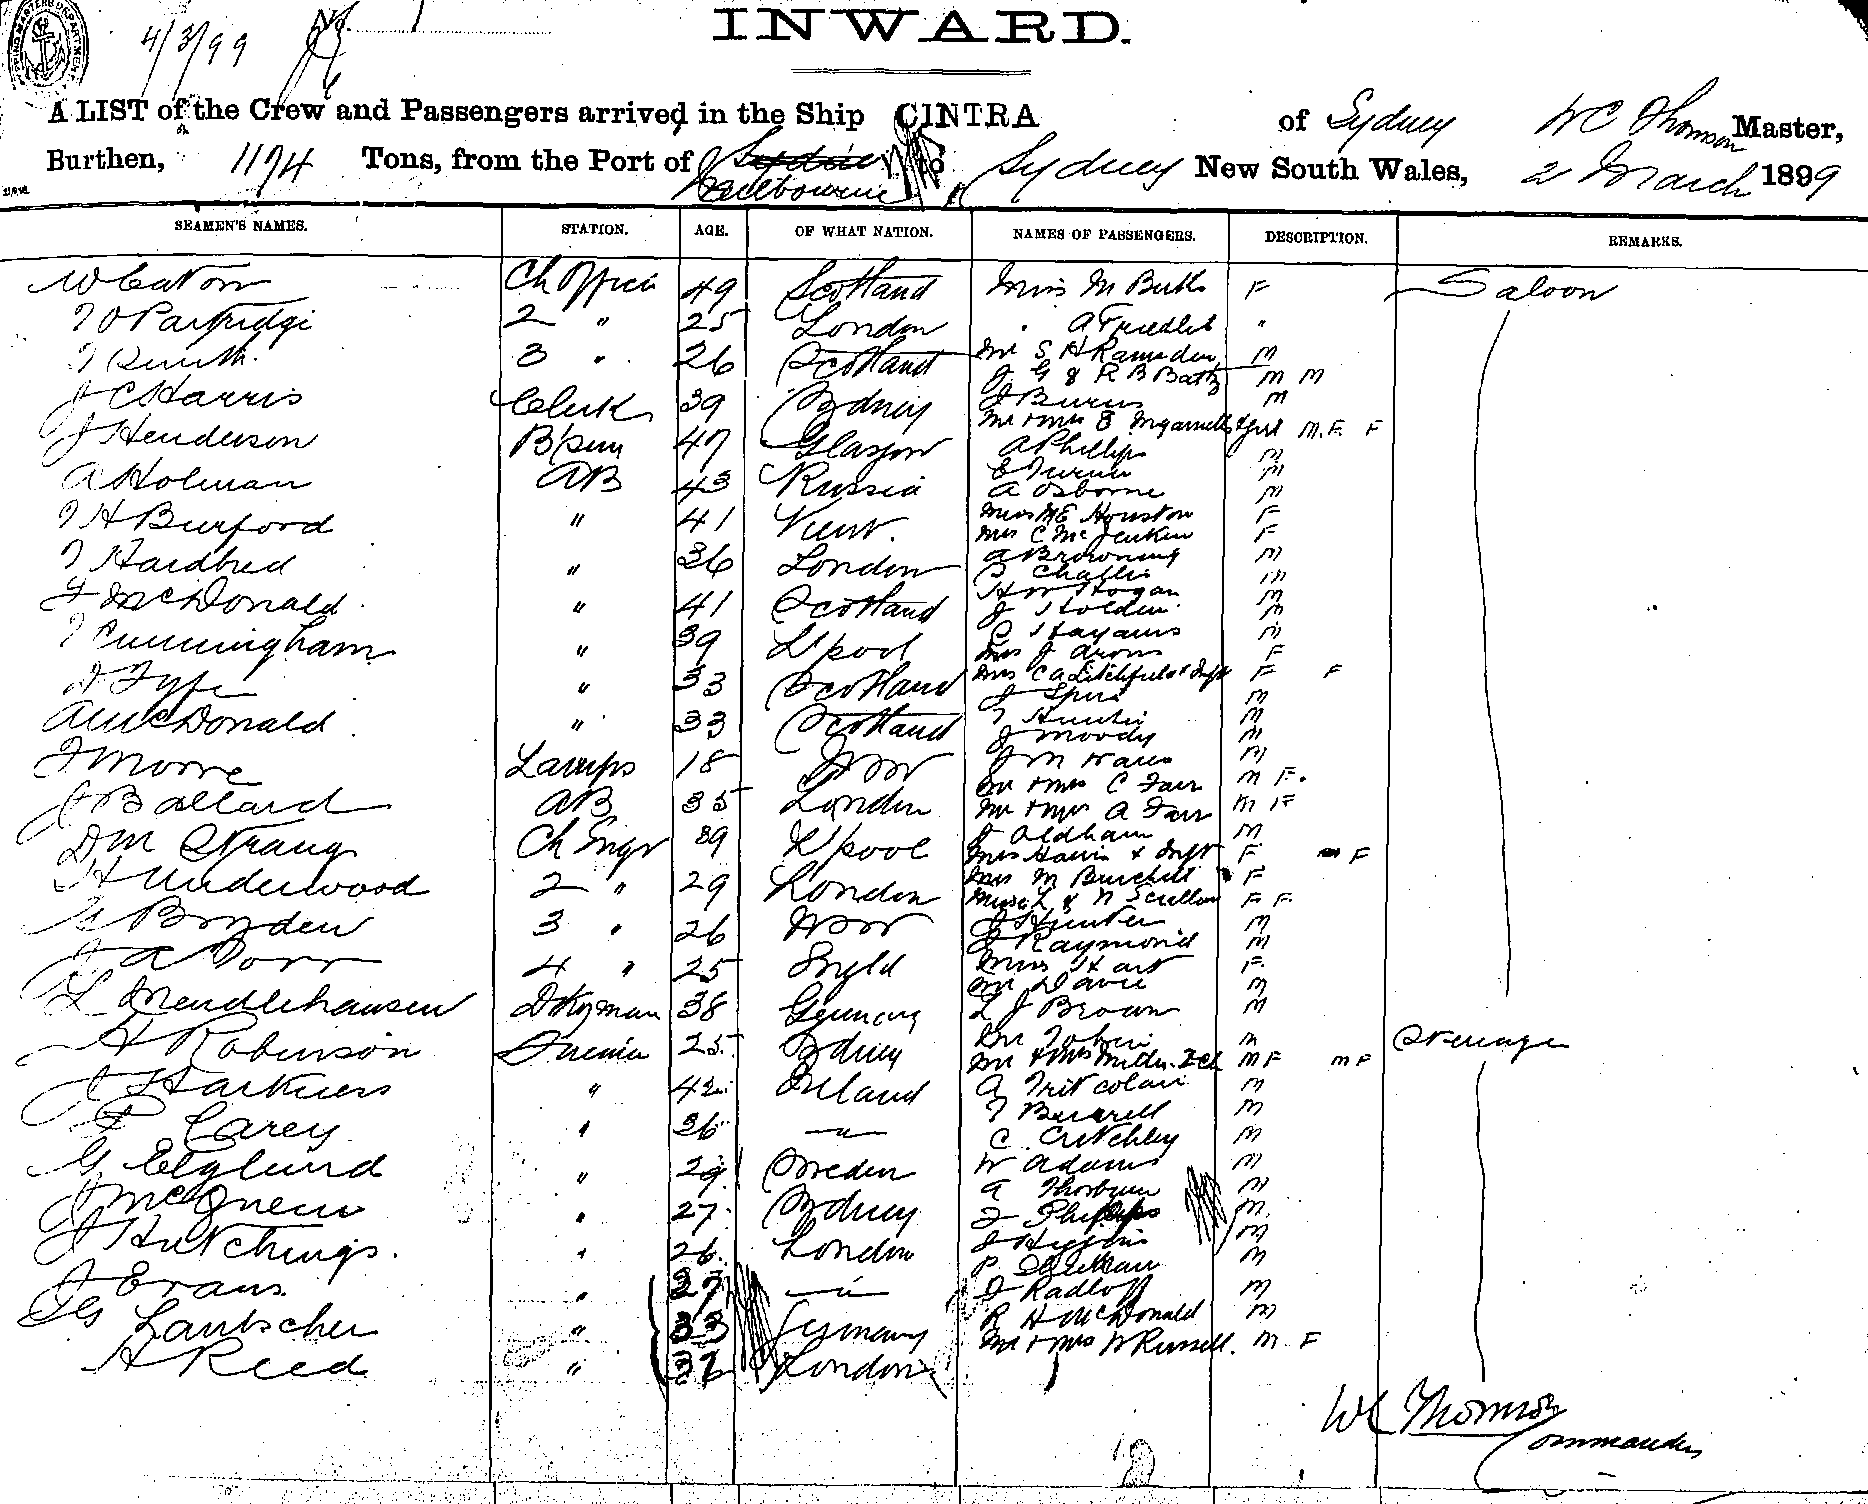 4/3/99
INWARD.
A LIST of the Crew and Passengers arrived in the Ship CINTRA of Sydney W C Thomson Master,
Burthen, 1174 Tons, from the Port of Melbourne to Sydney New South Wales, 2 March 1899
SEAMEN'S NAMES. STATION. AGE. OF WHAT NATION. NAMES OF PASSENGERS. DESCRIPTION. REMARKS.
W Eaton Ch Officer 49 Scotland Miss M F Saloon
Partridge 2 " 25 London A F "
Smith 3 " 26 Scotland Mr S H Ramsden M
J G & R B Batty M M
J C Harris Clerk 39 Sydney J Burns M
Mr & Mrs M. F. F
J Henderson B'sun 47 Glasgow A Phillips M
E Turner M
A Holman AB 43 Russia A Osborne M
T H Burford " 41 Kent. Miss M E Houston F
Mrs C McJenken F
T Hardbred " 36 London A Browning M
Challis M
F McDonald " 41 Scotland H W Hogan M
J Holden M
T Cunningham " 39 L'pool M
Mrs J Arons F
D Fyfe " 33 Scotland Mrs C A Litchfield & Inft F F
J M
A McDonald " 33 Scotland T Hunter M
J Moody M
J Moore Lamps 18 NSW J M Ware M
Mr & Mrs C Farr M F.
J Ballard AB 35 London Mr & Mrs A Farr M F
D M Strang Ch Engr 39 L'pool J Oldham M
Mrs Harris & Inft F F
H Underwood 2 " 29 London Mrs M Burchell F
Misses L & N Scullon F F
Bryden 3 " 26 NSW J Hunter M
J Raymond M
J A Dorr 4 " 25 Engld Miss Hart F
Mr Davie M
L Mendlehausen Dkyman 38 Germany L J Brown M
A Robinson Firemn 25 Sydney Mr Tobin M Steerage
Mr & Mrs Miller 2 ch M F M F
J Harkness " 42 Ireland A M
T Burrell M
P Carey " 36 — " — C. Critchley M
G Englund " 29 Sweden W Adams M
A Thorburn M
J McQueen " 27 Sydney J Phillips M
J Hutchings. " 26 London J Higgins M
P M
J Evans " 27 — " — J Radloff M
Lantscher " 33 Germany R H McDonald M
A Reed " 37 London Mr & Mrs W Russell. M F
W C Thomson
Commander